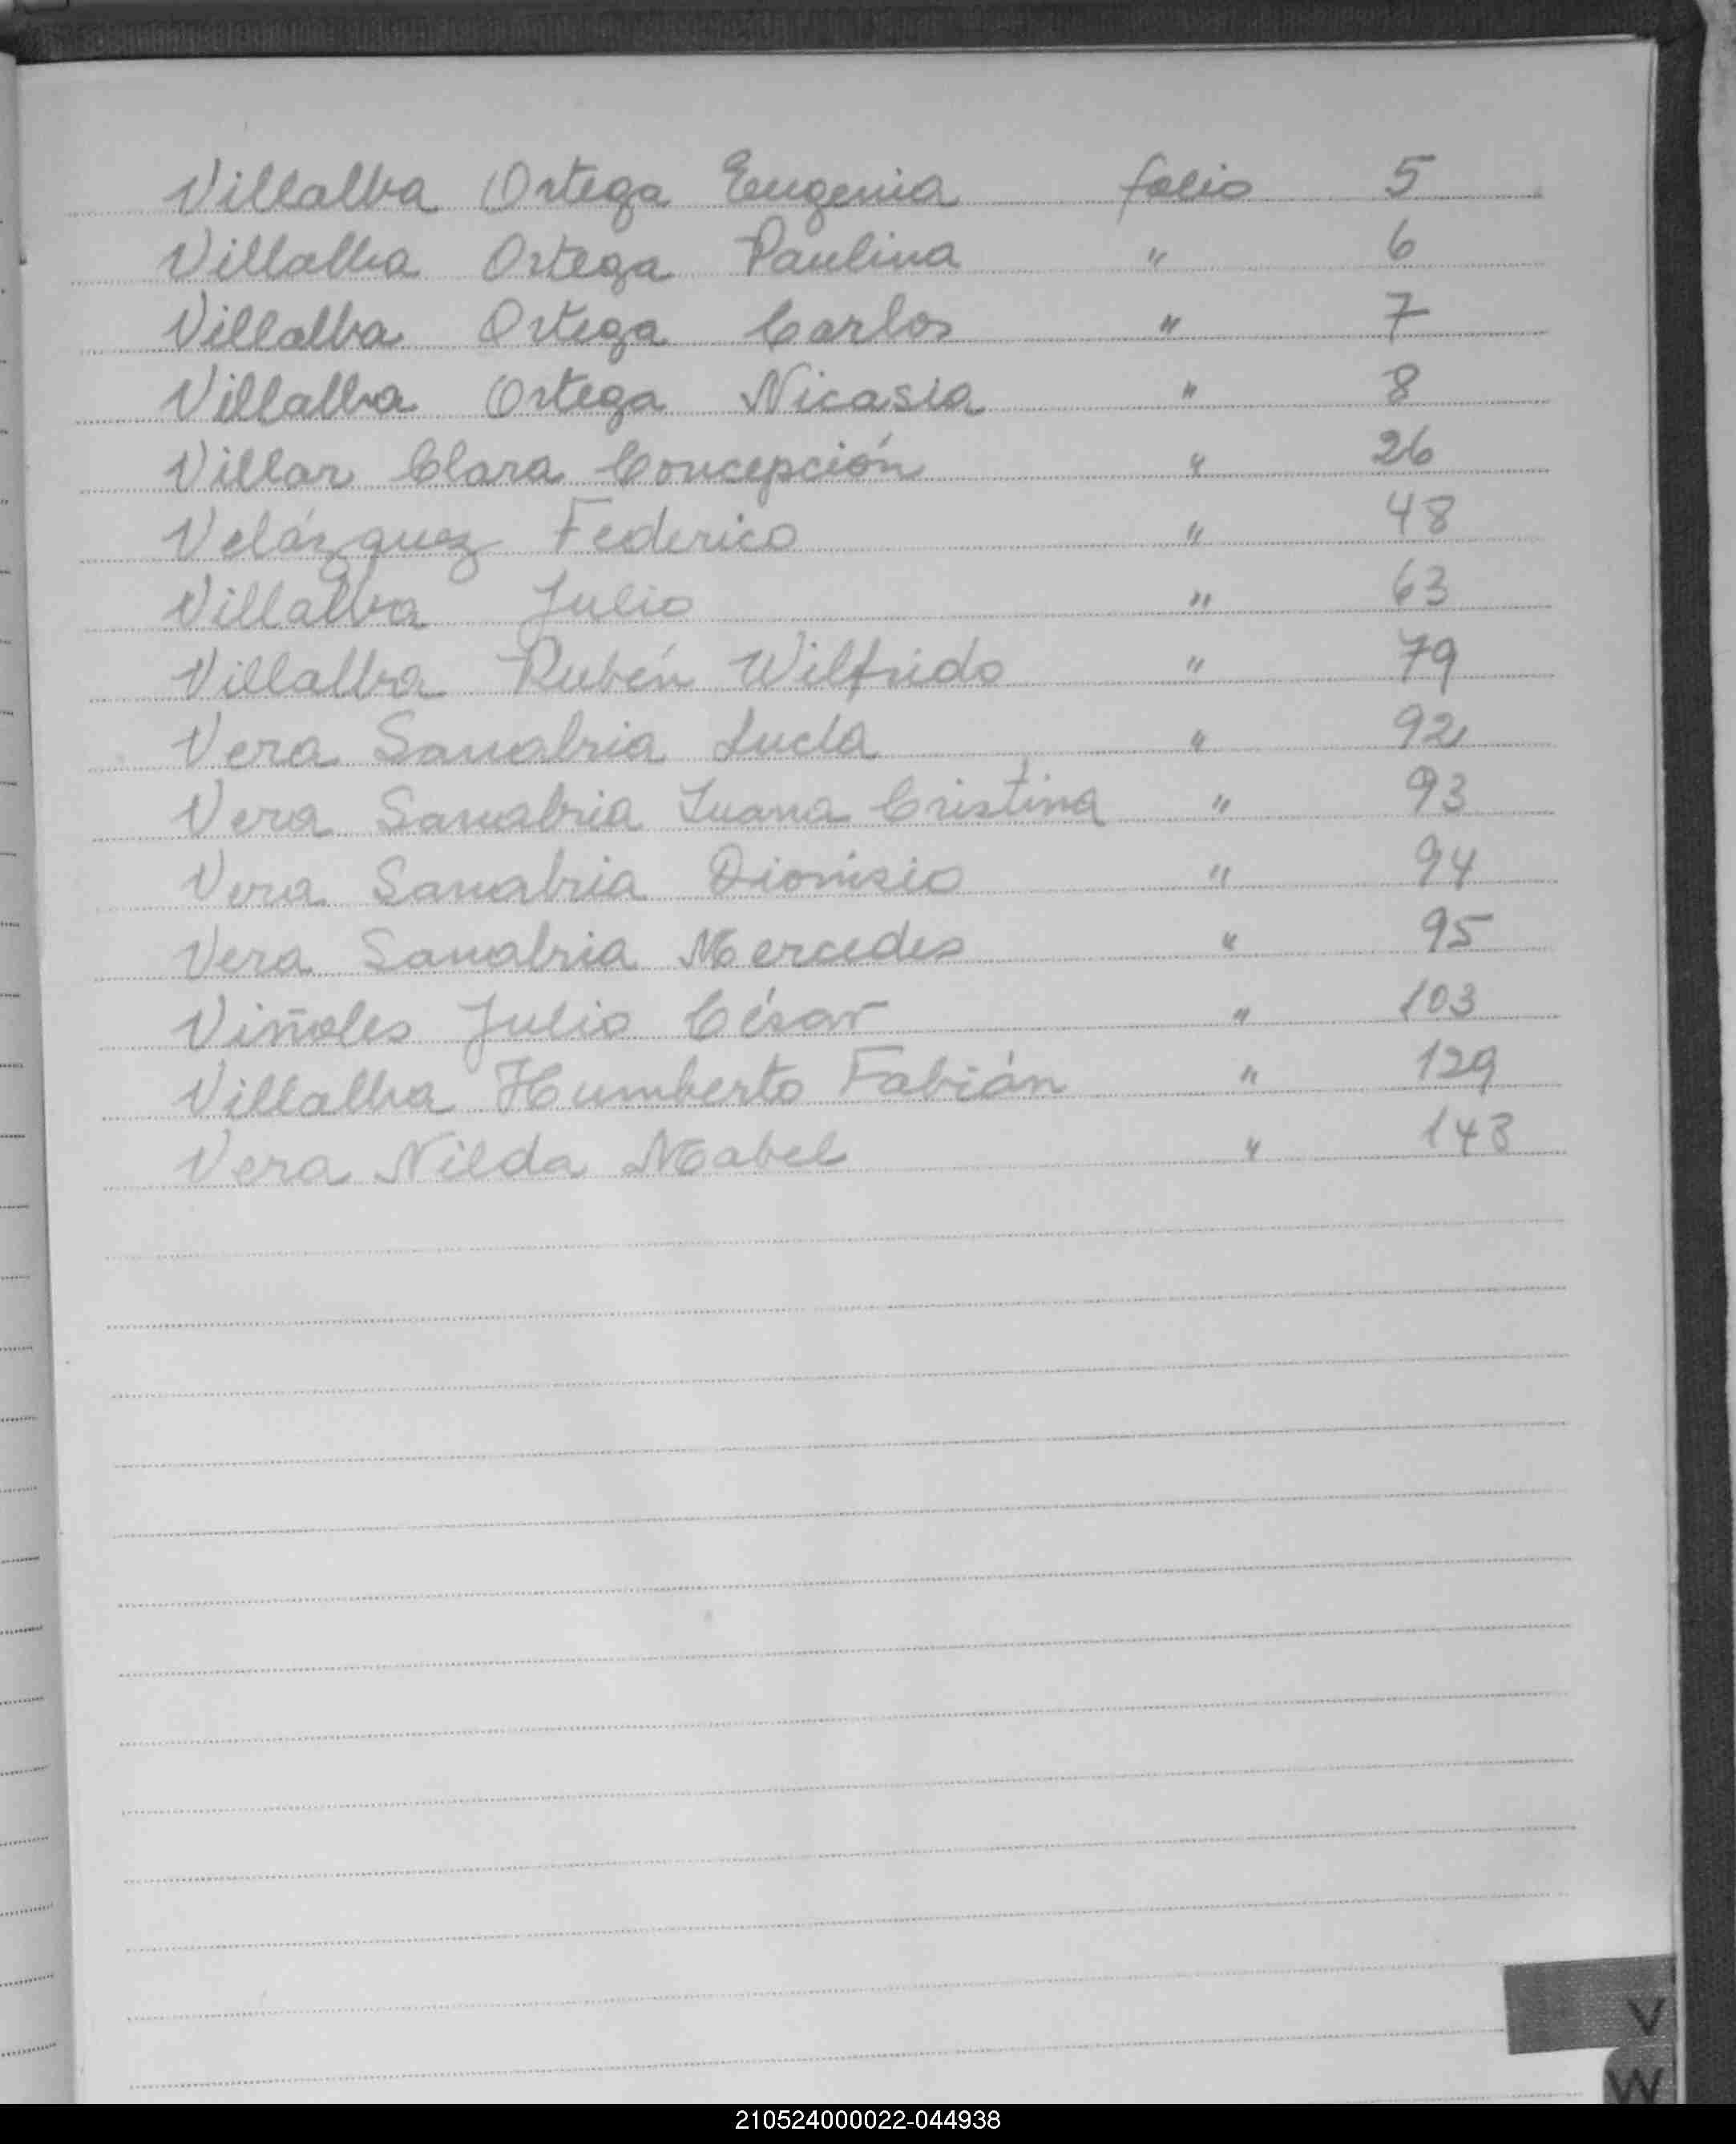 Villalba Ortega Eugenia folio 5
Villalba Ortega Paulina " 6
Villalba Ortega Carlos " 7
Villalba Ortega Nicasia " 8
Villar Clara Concepción " 26
Velázquez Federico " 48
Villalba Julio " 63
Villalba Rubén Wilfrido " 79
Vera Sanabria Lucía " 92
Vera Sanabria Juana Cristina " 93
Vera Sanabria Dionisio " 94
Vera Sanabria Mercedes " 95
Viñoles Julio César " 103
Villalba Humberto Fabián " 129
Vera Nilda Mabel " 143
V
W
210524000022-044938